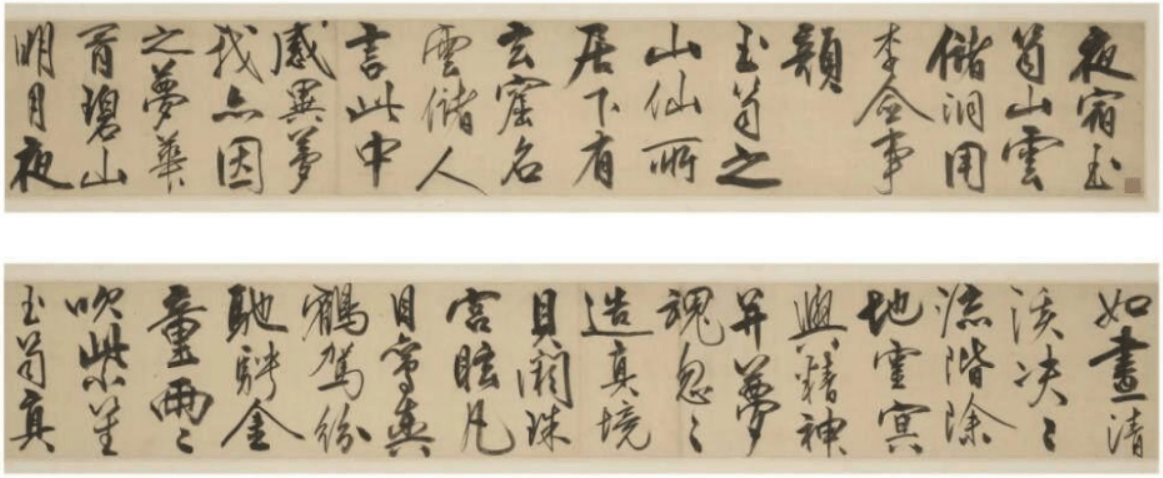 夜宿玉
笥山雲
儲洞用
李僉事
韻
玉笥之
山仙所
居下有
玄窟名
雲儲人
言此中
感異夢
我亦因
之夢華
胥碧山
明月夜
如晝清
溪決〻
流階除
地靈冥
與精神
并夢
魂忽〻
造真境
貝闕珠
宮眩凡
目鸞輿
鶴駕紛
馳騁金
童兩〻
吹紫笙
玉笥真